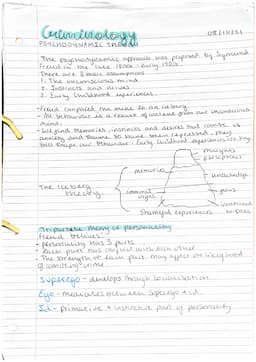 Criminology
PSYCHODYNAMIC THEORY
- The psychodynamic approach was proposed by Sigmund
Freud in the late 1800s - early 1900s.
There are 3 main assumptions
1. The unconscious mind
2. Instincts and drives
3. Early Childhood experiences.
- Freud compared the mind to an iceberg.
- All behaviour is a result of actions from our unconscious
mind.
- We find memories, instincts and desires that cause us
anxiety and trauma. So
our behaviour. Early childhood experiences
thoughts
perceptions
memories
knowledge
The Iceberg
theory.
fears
Shameful experiences
Tripartite theory of personality
Freud believes:
- Personality has 3 parts
- Each part has conflict with each other
- The strength of each part may affect the likelihood
of committing crime
Superego - develops through socialisation
Ego - mediates between superego + id.
Id - primitive + instinctive part of personality